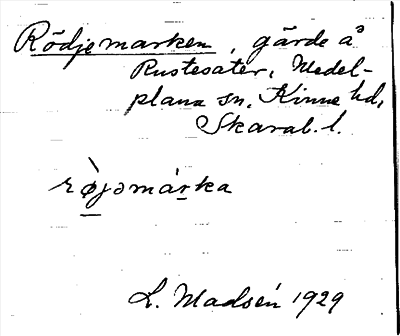 Rödjemarken, gärde å
Rustesäter, Medel-
plana sn, Kinne hd,
Skarab. l.
rø̀jəmárka
L. Madsén 1929